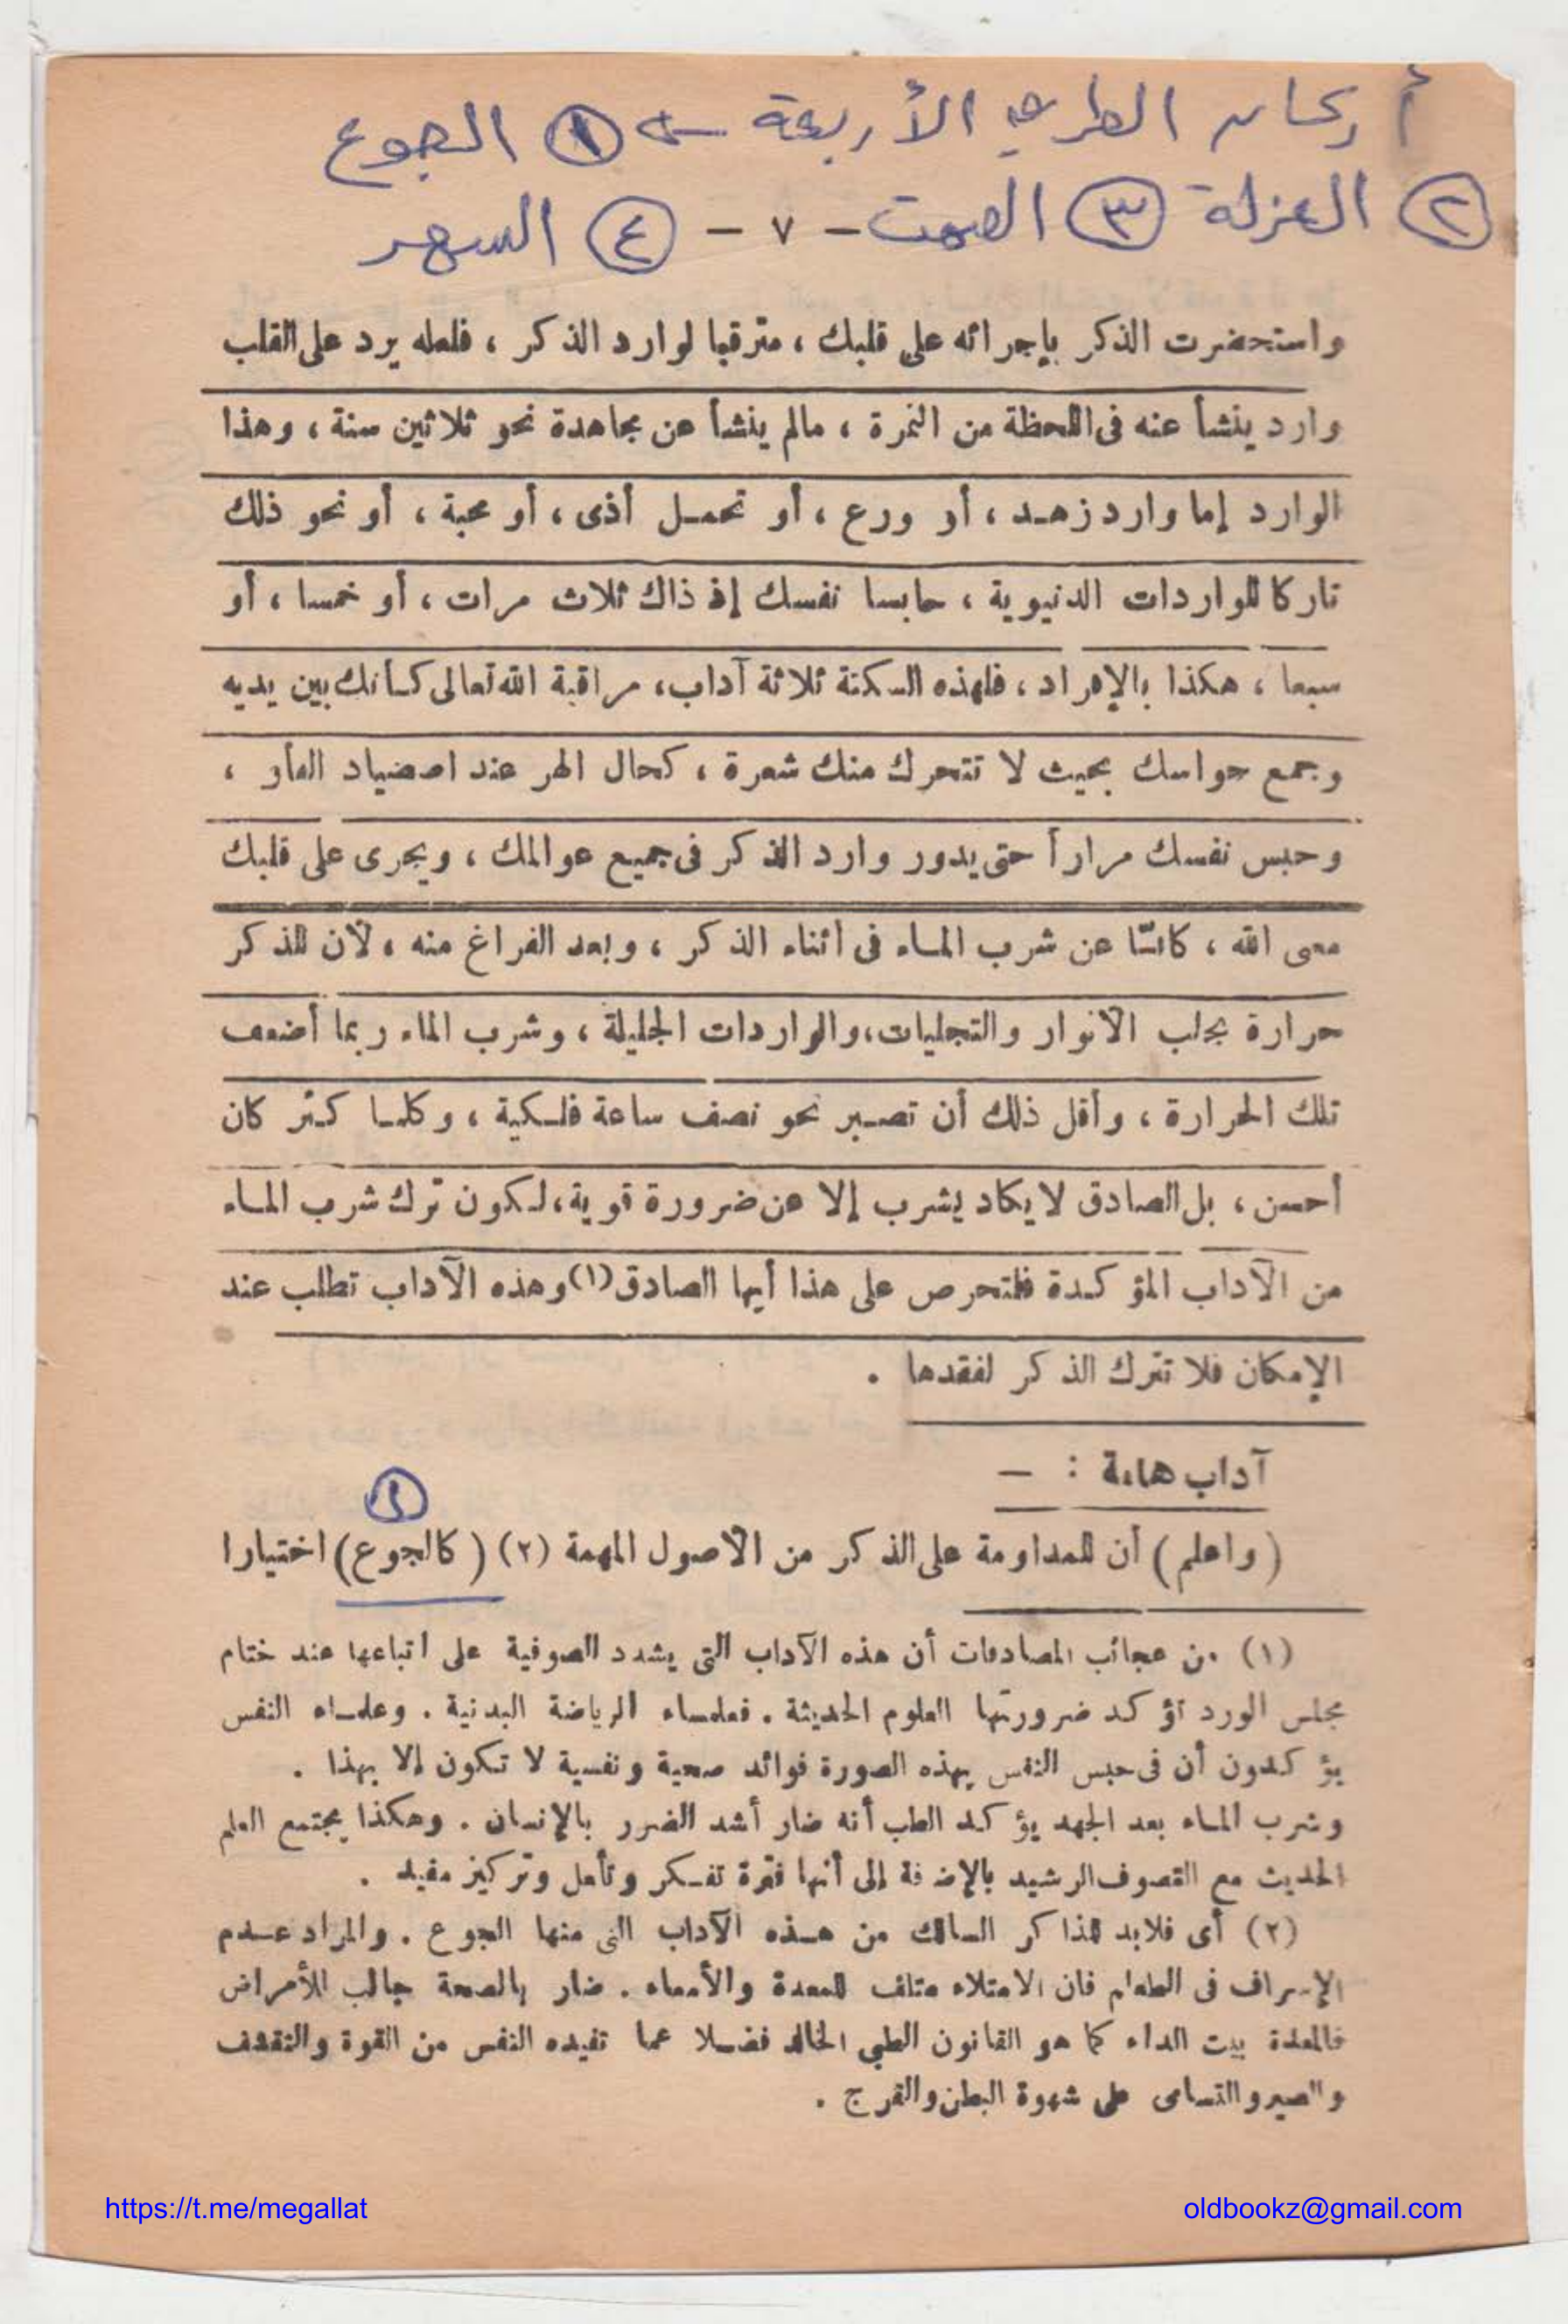 أركان الطريق الأربعة ← ١ الجوع
٢ العزلة ٣ الصمت - ٧ - ٤ السهر
واستحضرت الذكر بإجرائه على قلبك ، مترقبا لوارد الذكر ، فلعله يرد على القلب
وارد ينشأ عنه فى اللحظة من الثمرة ، مالم ينشأ عن مجاهدة نحو ثلاثين سنة ، وهذا
الوارد إما وارد زهد ، أو ورع ، أو تحمل أذى ، أو محبة ، أو نحو ذلك
تاركا للواردات الدنيوية ، حابسا نفسك إذ ذاك ثلاث مرات ، أو خمسا ، أو
سبعا ، هكذا بالإفراد ، فلهذه السكتة ثلاثة آداب ، مراقبة الله تعالى كأنك بين يديه
وجمع حواسك بحيث لا تتحرك منك شعرة ، كحال الهر عند اصضياد الفأر ،
وحبس نفسك مراراً حتى يدور وارد الذكر فى جميع عوالمك ، ويجرى على قلبك
معى الله ، كافّا عن شرب الماء فى أثناء الذكر ، وبعد الفراغ منه ، لأن للذكر
حرارة بجلب الأنوار والتجليات ، والواردات الجليلة ، وشرب الماء ربما أضعف
تلك الحرارة ، وأقل ذلك أن تصبر نحو نصف ساعة فلكية ، وكلما كثر كان
أحسن ، بل الصادق لا يكاد يشرب إلا عن ضرورة قوية ، لكون ترك شرب الماء
من الآداب المؤكدة فلتحرص على هذا أيها الصادق (١) وهذه الآداب تطلب عند
الإمكان فلا تترك الذكر لفقدها .
آداب هامة : —
١
( واعلم ) أن للمداومة على الذكر من الأصول المهمة (٢) ( كالجوع ) اختيارا
(١) من عجائب المصادفات أن هذه الآداب التى يشدد الصوفية على أتباعها عند ختام
مجلس الورد تؤكد ضرورتها العلوم الحديثة . فعلماء الرياضة البدنية . وعلماء النفس
يؤكدون أن فى حبس النفس بهذه الصورة فوائد صحية ونفسية لا تكون إلا بهذا .
وشرب الماء بعد الجهد يؤكد الطب أنه ضار أشد الضرر بالإنسان . وهكذا يجتمع العلم
الحديث مع التصوف الرشيد بالإضافة إلى أنها فترة تفكر وتأمل وتركيز مفيد .
(٢) أى فلابد للذاكر السالك من هذه الآداب التى منها الجوع . والمراد عدم
الإسراف فى الطعام فان الامتلاء متلف للمعدة والأمعاء . ضار بالصحة جالب للأمراض
فالمعدة بيت الداء كما هو القانون الطبى الخالد فضلا عما تفيده النفس من القوة والتقشف
والصبر والتسامى على شهوة البطن والفرج .
https://t.me/megallat
oldbookz@gmail.com